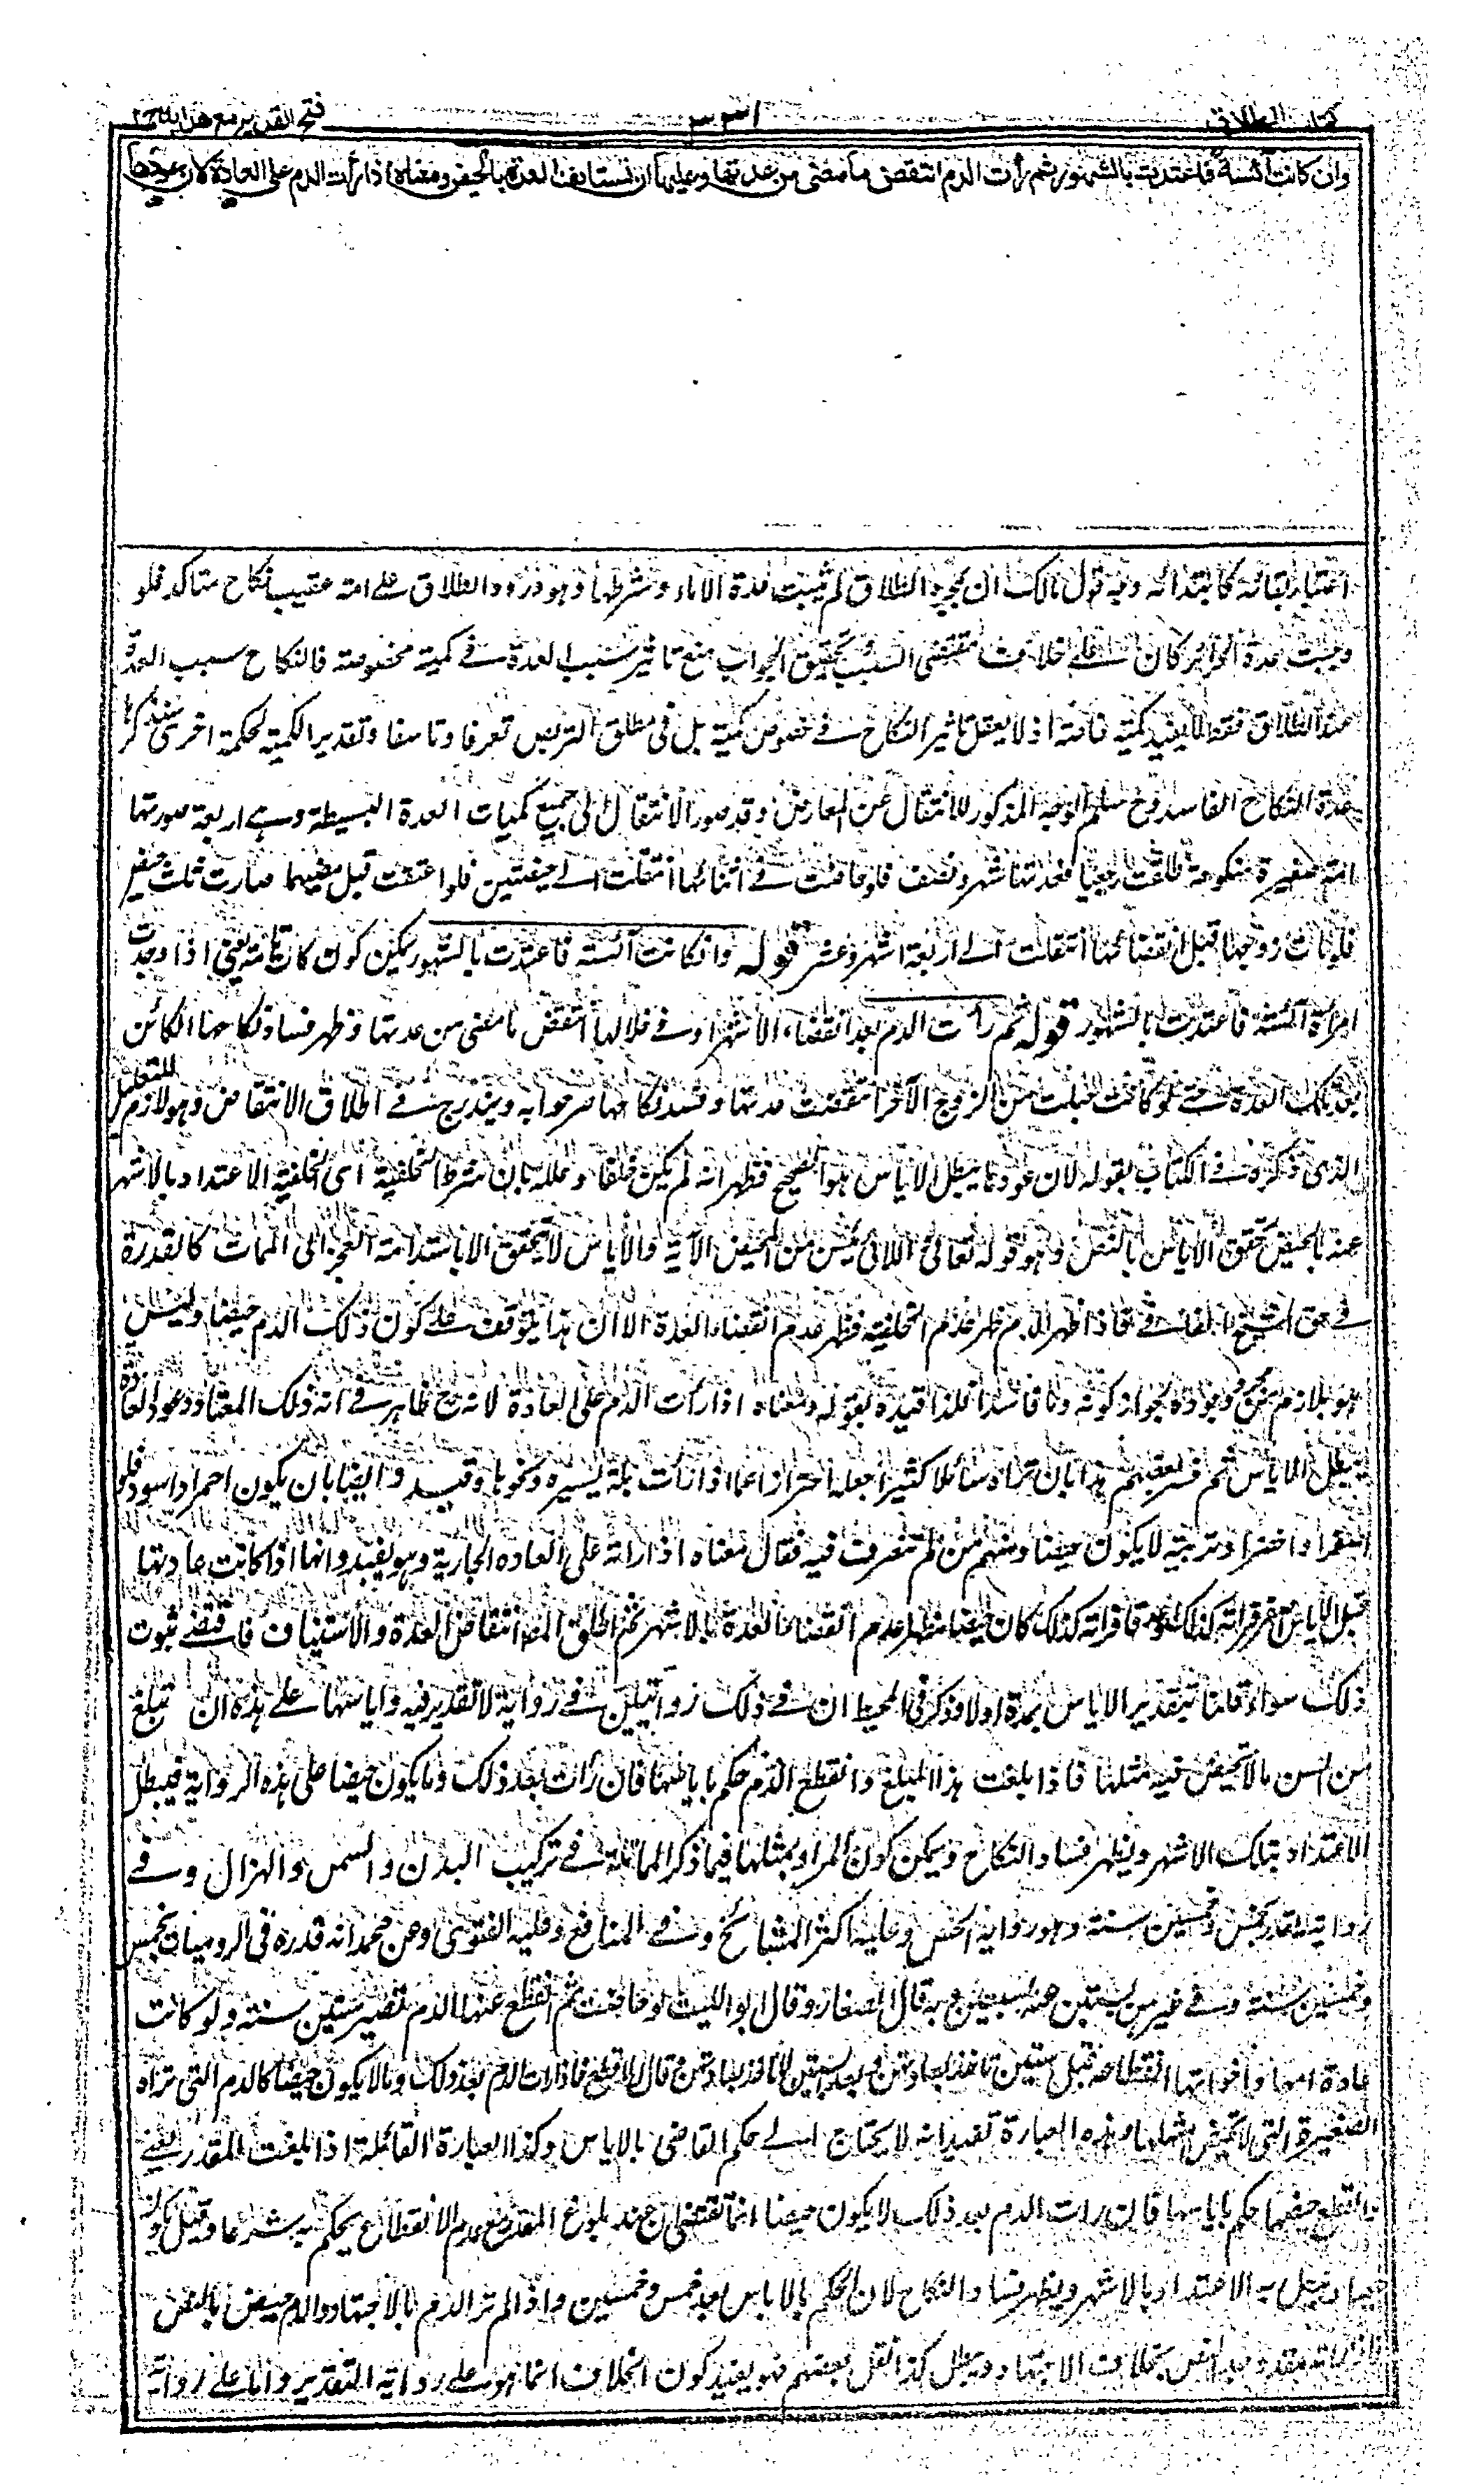 كتاب الطلاق
٣٣١
فتح القدير مع هدايه ج٢
وان كانت آئسة فاعتدت بالشهور ثم رأت الدم انتقض ما مضى من عدتها وعليها ان تستانف العدة بالحيض ومعناه اذا رأت الدم على العادة لان عودها
اعتبار لبقائه كابتدائه وبه قول مالك ان بمجرد الطلاق لم يثبت عدة الاماء وشرطها وهو ورود الطلاق على امة عقيب نكاح متاكد فلو
وجبت عدة الحرائر كان على خلاف مقتضى السبب وتحقيق الجواب منع تاثير سبب العدة في كمية مخصوصة فالنكاح سبب العدة
عند الطلاق فقط لا يفيد كمية خاصة اذ لا يعقل تاثير النكاح في خصوص كمية بل في مطلق التربص تعرفا وتاسفا وتقدير الكمية لحكمة اخرى سنذكر
عدة النكاح الفاسد وح سلم الوجه المذكور للانتقال عن المعارض وقد صور الانتقال الى جميع كميات العدة البسيطة وهي اربعة صورتها
امة صغيرة منكوحة طلقت رجعيا فعدتها شهر ونصف فلو حاضت في اثنائها انتقلت الى حيضتين فلو اعتقت قبل مضيهما صارت ثلث حيض
فلو مات زوجها قبل انقضائها انتقلت الى اربعة اشهر وعشر قوله وان كانت آئسة فاعتدت بالشهور يمكن كون كان تامة يعني اذا وجدت
امرأة آئسة فاعتدت بالشهور قوله ثم رأت الدم بعد انقضاء الاشهر او في خلالها انتقض ما مضى من عدتها وظهر فساد نكاحها الكائن
بعد تلك العدة حتى لو كانت حبلت من الزوج الآخر انتقضت عدتها وفسد نكاحها صرحوا به ويندرج في اطلاق الانتقاض وهو لازم للتعليل
الذي ذكره في الكتاب بقوله لان عودها يبطل الاياس هو الصحيح فظهر انه لم يكن خلفا وعلله بان شرط الخلفية اى لخلفية الاعتداد بالاشهر
عنه بالحيض تحقق الاياس بالنص وهو قوله تعالى واللائي يئسن من المحيض الآية والاياس لا يتحقق الا باستدامة العجز الى الممات كالفدية
في حق الشيخ الفاني فاذا ظهر الدم ظهر عدم الخلفية فظهر عدم انقضاء العدة الا ان هذا يتوقف على كون ذلك الدم حيضا وليس
هو بلازم من مجرد وجوده لجواز كونه دما فاسدا فلذا قيده بقوله ومعناه اذا رأت الدم على العادة لانه ح ظاهر في انه ذلك المعتاد وعود العادة
يبطل الاياس ثم فسر بعضهم هذا بان تراه سائلا كثيرا جعله احترازا عما اذا رأت بلة يسيرة ونحوها وقيد وايضا بان يكون احمر او اسود فلو
اصفر او اخضر او تربية لا يكون حيضا ومنهم من لم يتصرف فيه فقال معناه اذا رأته على العادة الجارية وهو يفيد انها اذا كانت عادتها
قبل الاياس اصفر فرأته كذلك او علقا فرأته كذلك كان حيضا فظهر عدم انقضاء العدة بالاشهر ثم اطلق المص انتقاض العدة والاستيناف فاقتضى ثبوت
ذلك سواء قلنا بتقدير الاياس بمدة اولا وذكر في المحيط ان في ذلك روايتين في رواية لا تقدير فيه واياسها على هذه ان تبلغ
من السن ما لا يحيض فيه مثلها فاذا بلغت هذا المبلغ وانقطع الدم حكم باياسها فان رأت بعد ذلك دما يكون حيضا على هذه الرواية فيبطل
الاعتداد بتلك الاشهر ويظهر فساد النكاح ويمكن كون المراد بمثلها فيما ذكر المماثلة في تركيب البدن والسمن والهزال وفي
رواية يقدر بخمس وخمسين سنة وهو رواية الحسن وعليه اكثر المشايخ وفي المنافع وعليه الفتوى وعن محمد انه قدره في الروميات بخمس
وخمسين سنة وفي غيرهن بستين عنه بسبعين وبه قال الصفار وقال ابو الليث لو حاضت ثم انقطع عنها الدم تصبر ستين سنة ولو كانت
عادة امها واخواتها انقطاعه قبل ستين تاخذ بعادتهن وبعد ستين لا تاخذ بعادتهن ومن قال لا تقطع فاذا رأت الدم بعد ذلك دما لا يكون حيضا كالدم التي تراه
الصغيرة التي لا تحيض مثلها وهذه العبارة تفيد انه لا يحتاج الى حكم القاضي بالاياس وكذا العبارة القائلة اذا بلغت المقدر يعني
بانقطع حيضها حكم باياسها فان رأت الدم بعد ذلك لا يكون حيضا انما تقتضي ان عند بلوغ المقدر مع عدم الانقطاع يحكم به شرعا وقيل يكون
حيضا ويبطل به الاعتداد بالاشهر ويظهر فساد النكاح لان الحكم بالاياس بعد خمس وخمسين واذا لم تر الدم بالاجتهاد والدم حيض بالنص
فاذا رأته فقد وجد النص بخلاف الاجتهاد ويبطل كذا نقل بعضهم فهو يفيد كون الخلاف انما هو على رواية التقدير واما على رواية